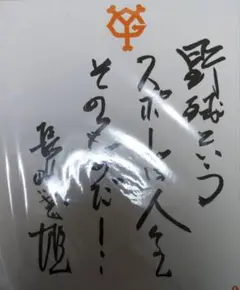 野球という
スポーツは人生
そのものだ！
長嶋茂雄
YG